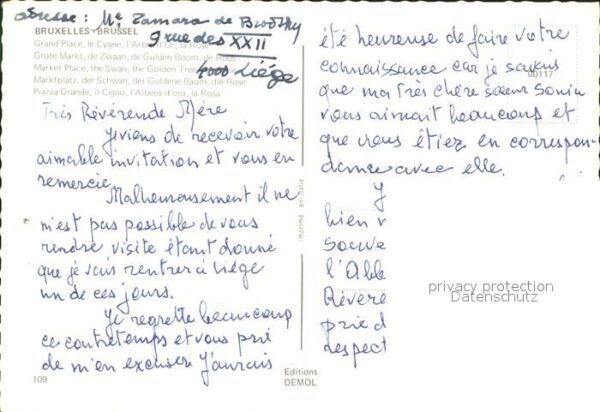 adresse : Me Tamara de
9 rue des XXII
4000 Liége
BRUXELLES - BRUSSEL
Grand Place, le Cygne, l'Arbre d'Or, la Rose
Grote Markt, de Zwaan, de Gulden Boom, de Roos
Market Place, the Swan, the Golden Tree,
Marktplatz, der Schwan, der Goldene Baum, die Rose
Piazza Grande, il Cigno, l'Albero d'oro, la Rosa
Très Révérende Mère
J'viens de recevoir votre
aimable invitation et vous en
remercie.
Malheureusement il ne
m'est pas possible de vous
rendre visite étant donné
que je vais rentrer à Liége
un de ces jours.
Je regrette beaucoup
ce contretemps et vous prie
de m'en excuser J'aurais
109
imprimé en Italie
Editions
DEMOL
été heureuse de faire votre
connaissance car je savais
00117
que ma Très chère soeur Sonia
vous aimait beaucoup et
que vous étiez en correspon-
dance avec elle.
J
bien v
Souve
l'Abb
Révére
prie d
respect
privacy protection
Datenschutz